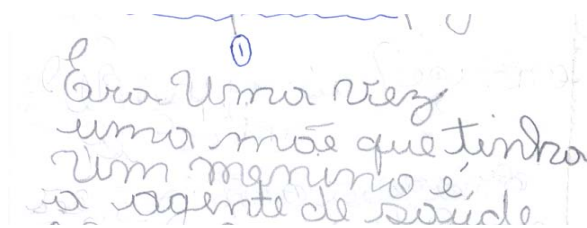 ①
Era uma vez
uma mãe que tinha
um menino e,
a agente de saúde